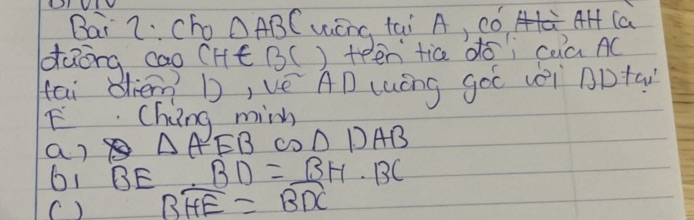 Bài 2: Cho ΔABC vuông tại A, có AH là
đường cao (H ∈ BC) trên tia đối của AC
tai điểm D, vẽ AD vuông góc với BD tại
E. Chứng minh
a) ΔAEB ∽ Δ DAB
b) BE . BD = BH . BC
c) BHE = BDC